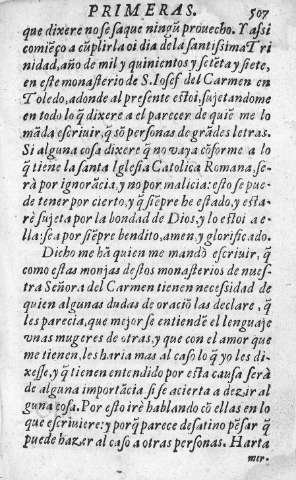 PRIMERAS. 507
que dixere no se saque ningũ prouecho. Y assi
comiẽço a cũplirla oi dia dela santissima Tri
nidad, año de mil y quinientos y setẽta y siete,
en este monasterio de S. Iosef del Carmen en
Toledo, adonde al presente estoi, sujetandome
en todo lo q̃ dixere a el parecer de quiẽ me lo
mãda escriuir, q̃ sõ personas de grãdes letras.
Si alguna cosa dixere q̃ no vaya cõforme a lo
q̃ tiene la santa Iglesia Catolica Romana, se-
rà por ignorãcia, y no por malicia: esto se pue-
de tener por cierto, y q̃ siẽpre he estado, y esta-
rè sujeta por la bondad de Dios, y lo estoi a e-
lla: sea por siẽpre bendito, amen, y glorificado.
Dicho me hã quien me mandò escriuir, q̃
como estas monjas destos monasterios de nues-
tra Señora del Carmen tienen necessidad de
quien algunas dudas de oraciõ las declare, q̃
les parecia, que mejor se entiendẽ el lenguaje
vnas mugeres de otras, y que con el amor que
me tienen, les haria mas al caso lo q̃ yo les di-
xesse, y q̃ tienen entendido por esta causa serà
de alguna importãcia si se acierta a dezir al
guna cosa. Por esto irè hablando cõ ellas en lo
que escriuiere: y porq̃ parece desatino pẽsar q̃
puede hazer al caso a otras personas. Harta
mer-